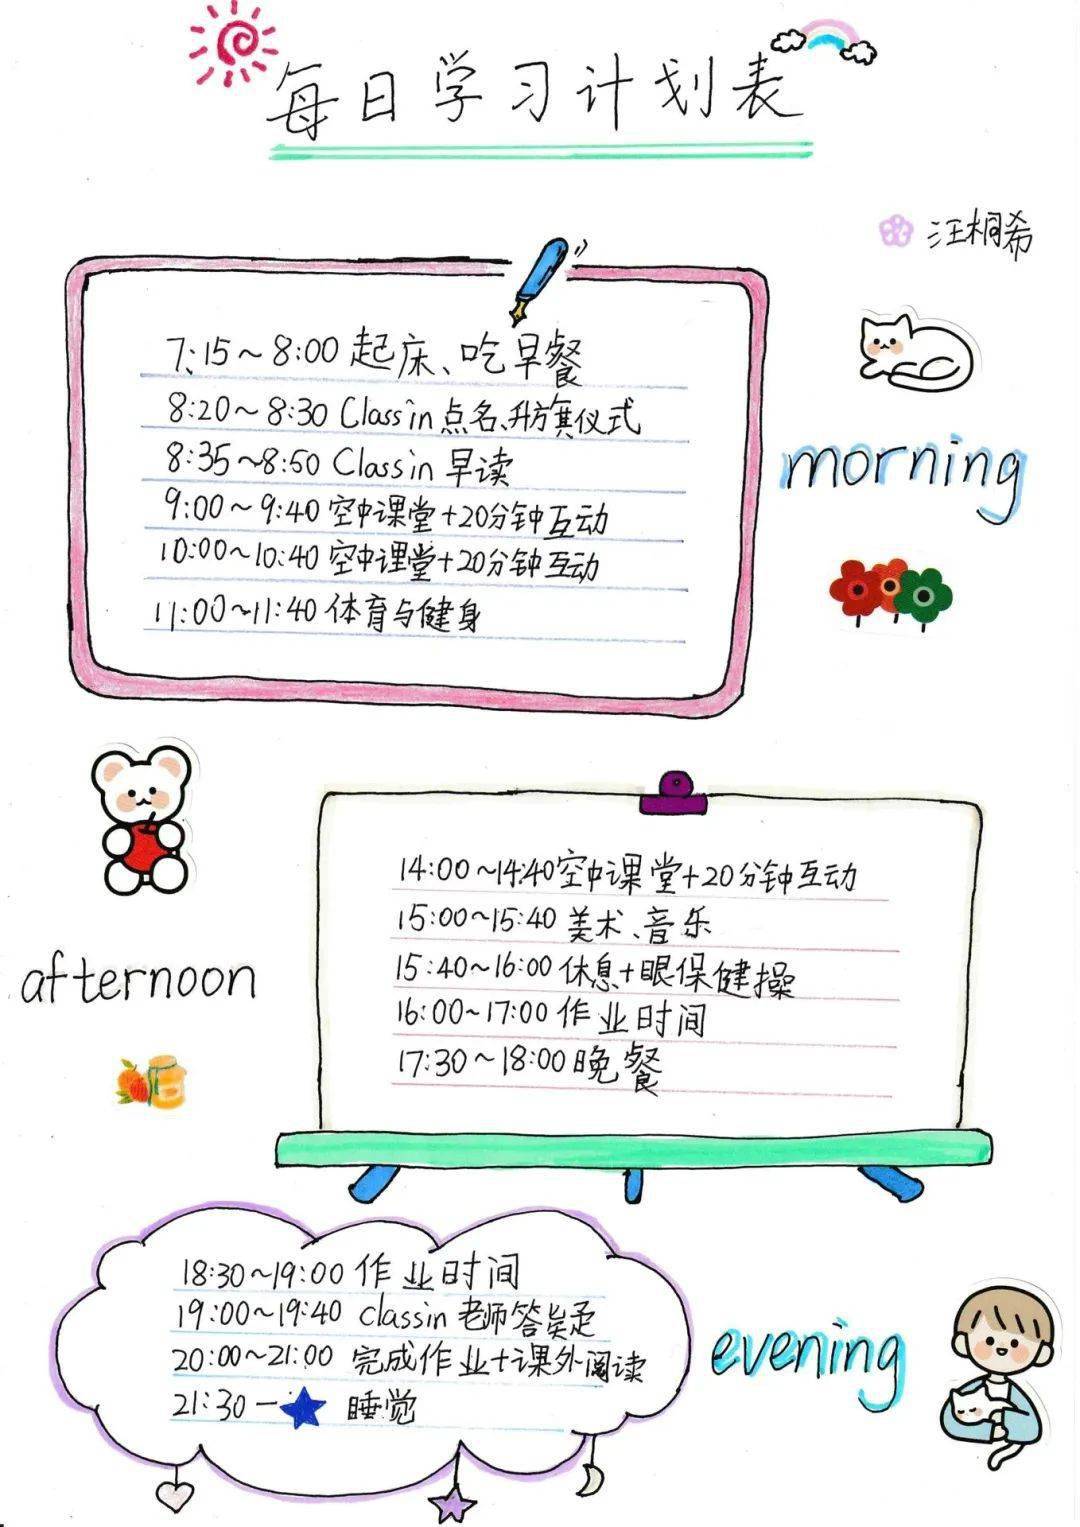 每日学习计划表
汪桐希
7:15~8:00 起床、吃早餐
8:20~8:30 Classin 点名、升旗仪式
8:35~8:50 Classin 早读
9:00~9:40 空中课堂+20分钟互动
10:00~10:40 空中课堂+20分钟互动
11:00~11:40 体育与健身
morning
14:00~14:40 空中课堂+20分钟互动
15:00~15:40 美术、音乐
15:40~16:00 休息+眼保健操
16:00~17:00 作业时间
17:30~18:00 晚餐
afternoon
18:30~19:00 作业时间
19:00~19:40 classin 老师答疑
20:00~21:00 完成作业+课外阅读
21:30— 睡觉
evening